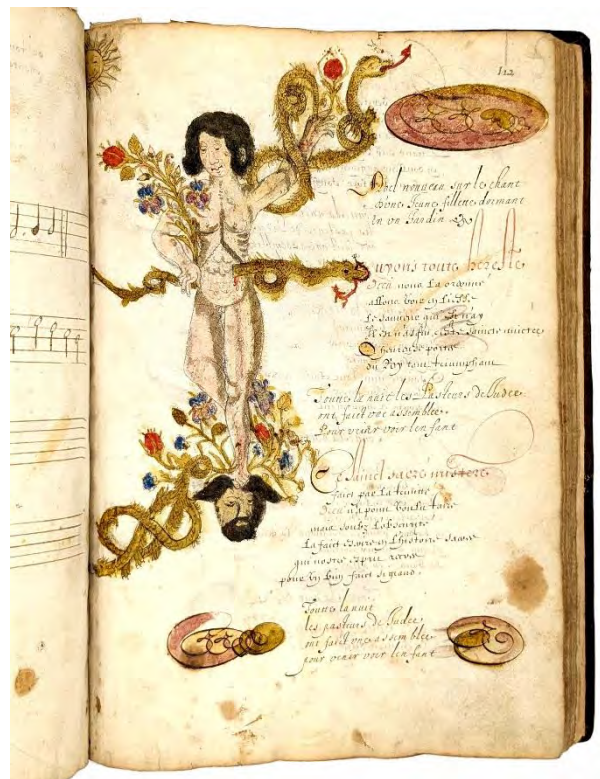 112
Noel nouveau sur le chant
d'une Jeune fillette dormant
en un Jardin &c
Fuyons toute heresie
Dieu nous l'a ordonné
allons voir
le sauveur qui est nay
saincte nuictee
O heureuse portee
du Roy tout triumphant
Toutte la nuit les Pasteurs de Judee
ont faict une assemblee
Pour venir voir lenfant
Ce Sainct sacré mistere
faict par la
Dieu n'a point voulu taire
mais soubz l'obscurité
La faict escrire en l'histoire sacree
qui nostre esprit recree
pour un bien faict si grand.
Toutte la nuit
les pasteurs de Judee
ont faict une assemblee
pour venir voir lenfant